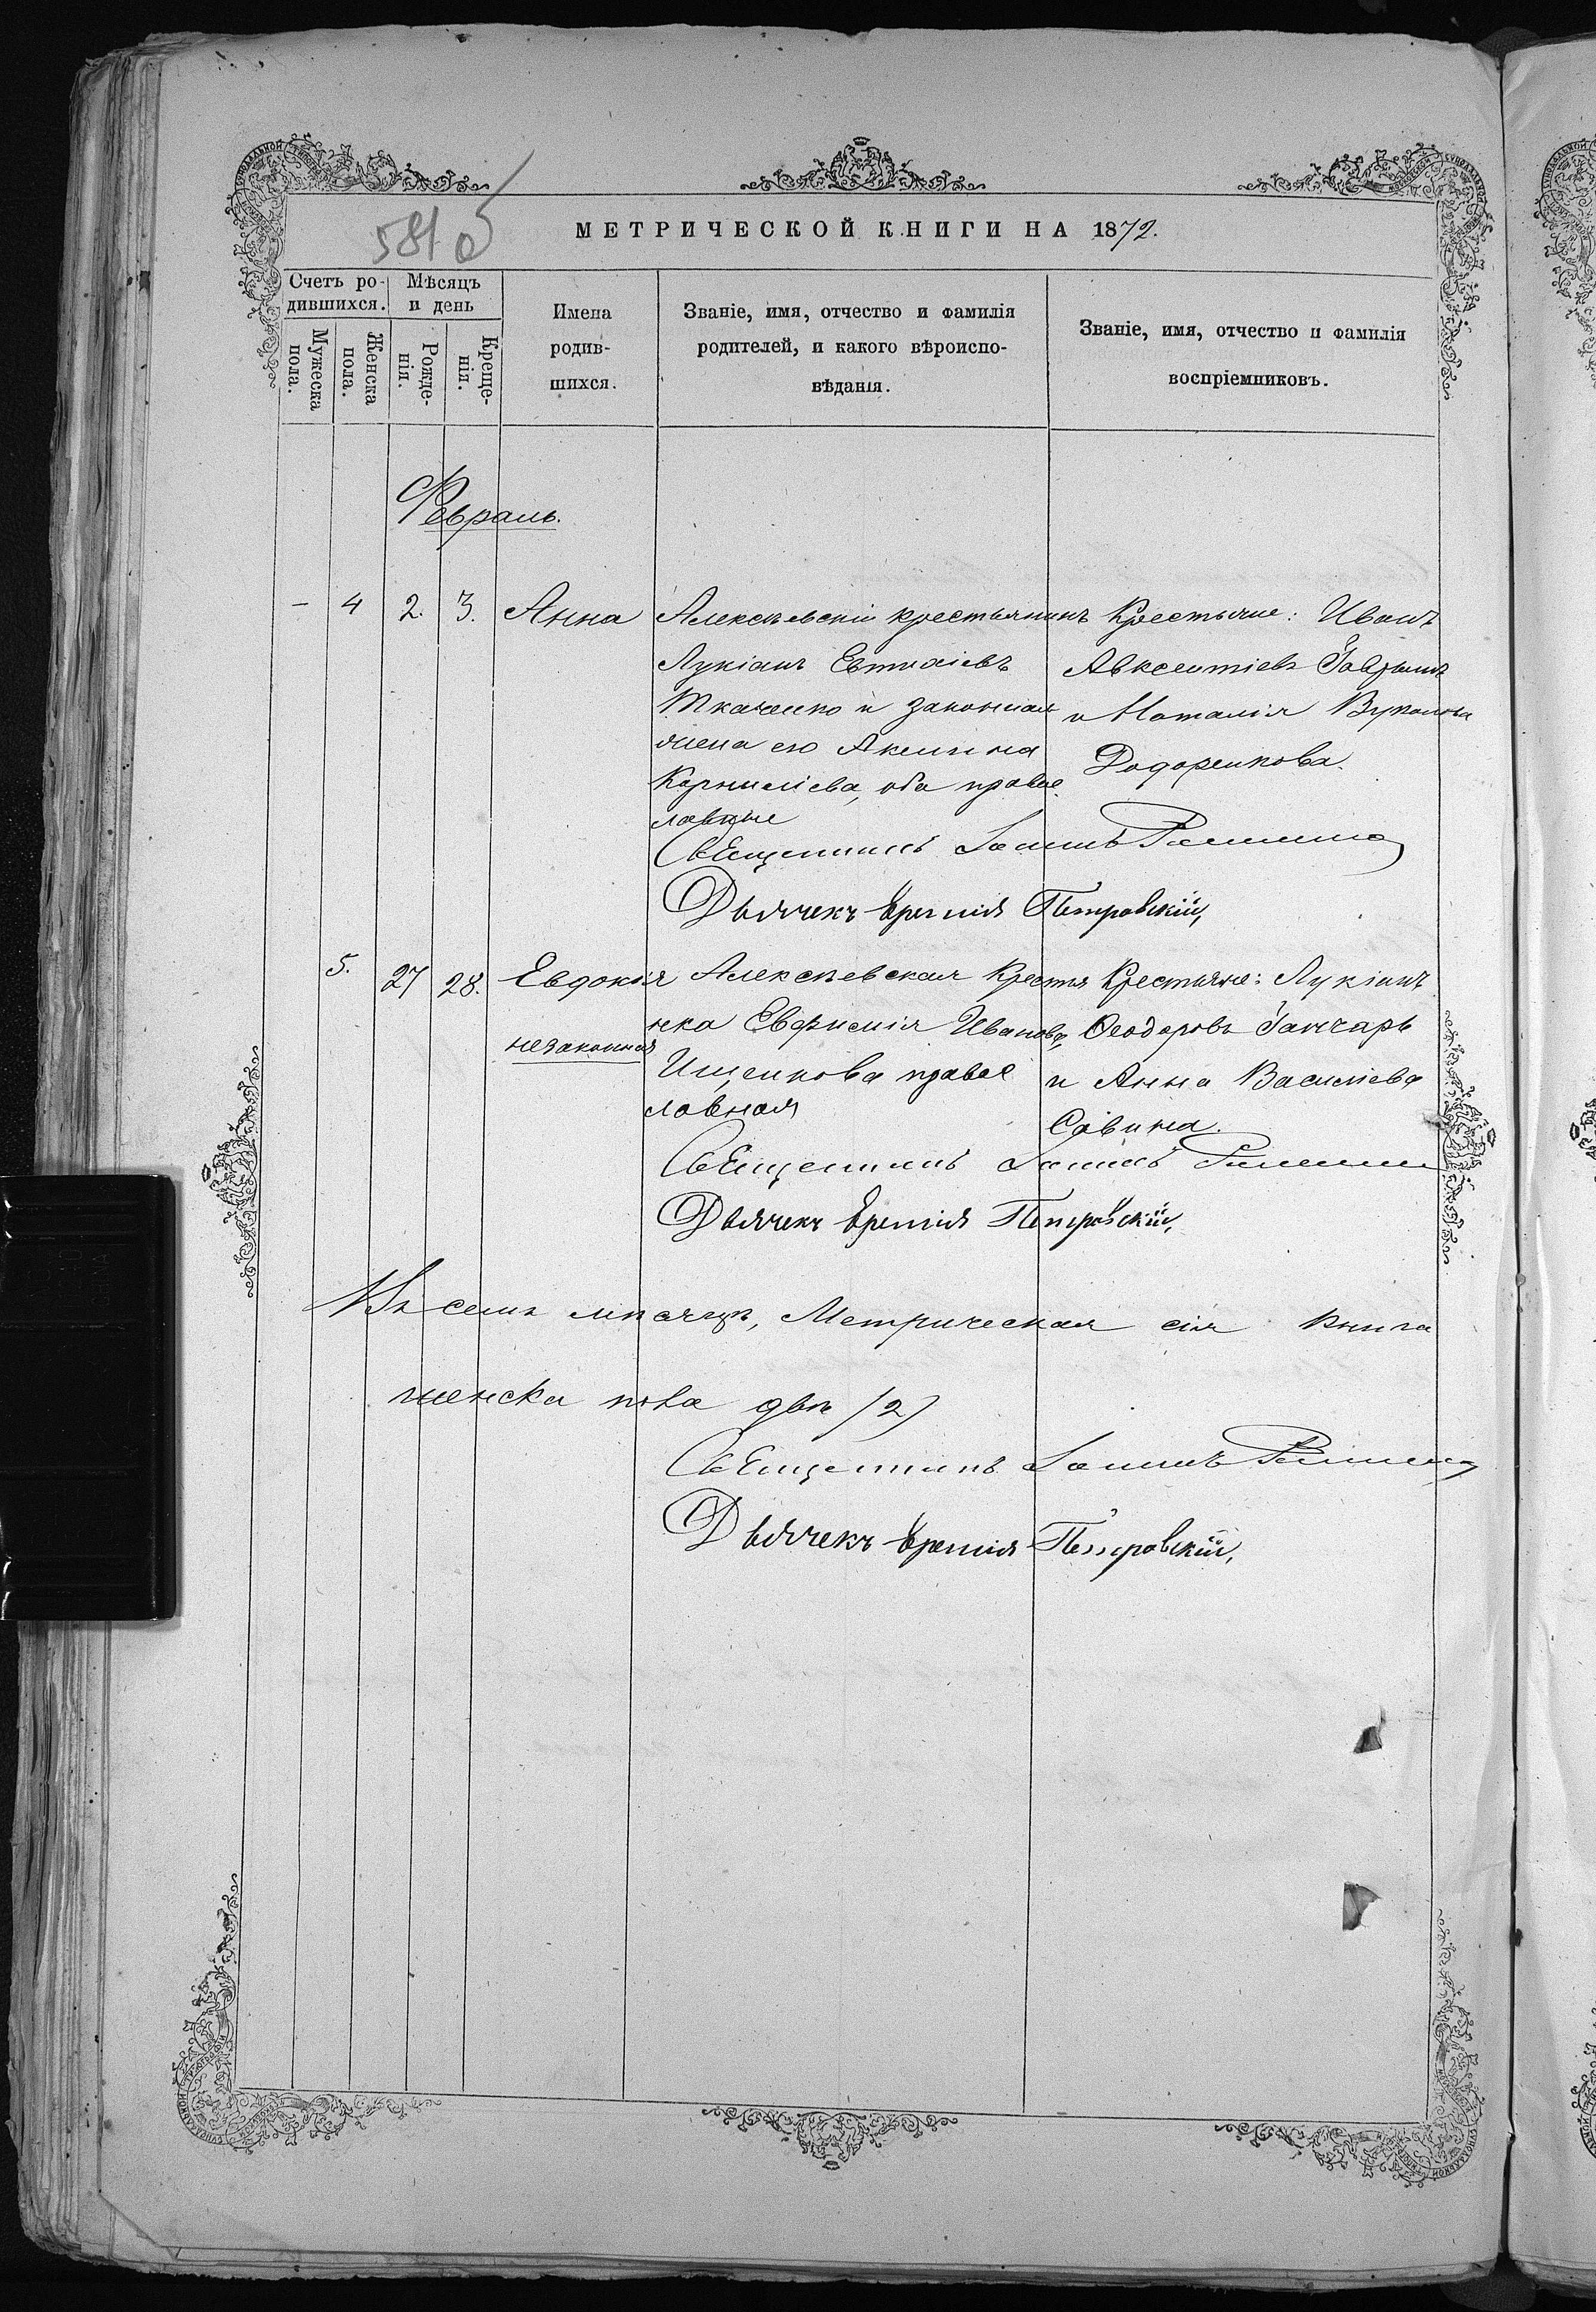 581 об
МЕТРИЧЕСКОЙ КНИГИ НА 1872.
Счетъ родившихся.
Мужеска пола.
Женска пола.
Мѣсяцъ и день
Рожденія.
Крещенія.
Имена
родив-
шихся.
Званіе, имя, отчество и фамилія
родителей, и какого вѣроиспо-
вѣданія.
Званіе, имя, отчество и фамилія
воспріемниковъ.
Февраль.
- 4 2. 3. Анна
Алексѣевскій крестьянинъ
Лукіанъ Евтихіевъ
Ткаченко и законная
жена его Акилина
Корниліева, оба правос
лавные
Крестьяне: Иванъ
Авксентіевъ
и Наталія Вуколова
Додоренкова.
Священникъ Іоаннъ
Дьячекъ Еремія Петровскій,
5. 27 28. Евдокія
незаконная
Алексѣевская Крестья
нка Евфимія Иванова
Ищенкова правос
лавная
Крестьяне: Лукіанъ
Ѳеодоровъ Ганчарь
и Анна Василіева
Савина.
Священникъ Іоаннъ
Дьячекъ Еремія Петровскій,
Въ семъ мѣсяцѣ, Метрическая сія книга
женска пола двѣ (2)
Священникъ Іоаннъ
Дьячекъ Еремія Петровскій,